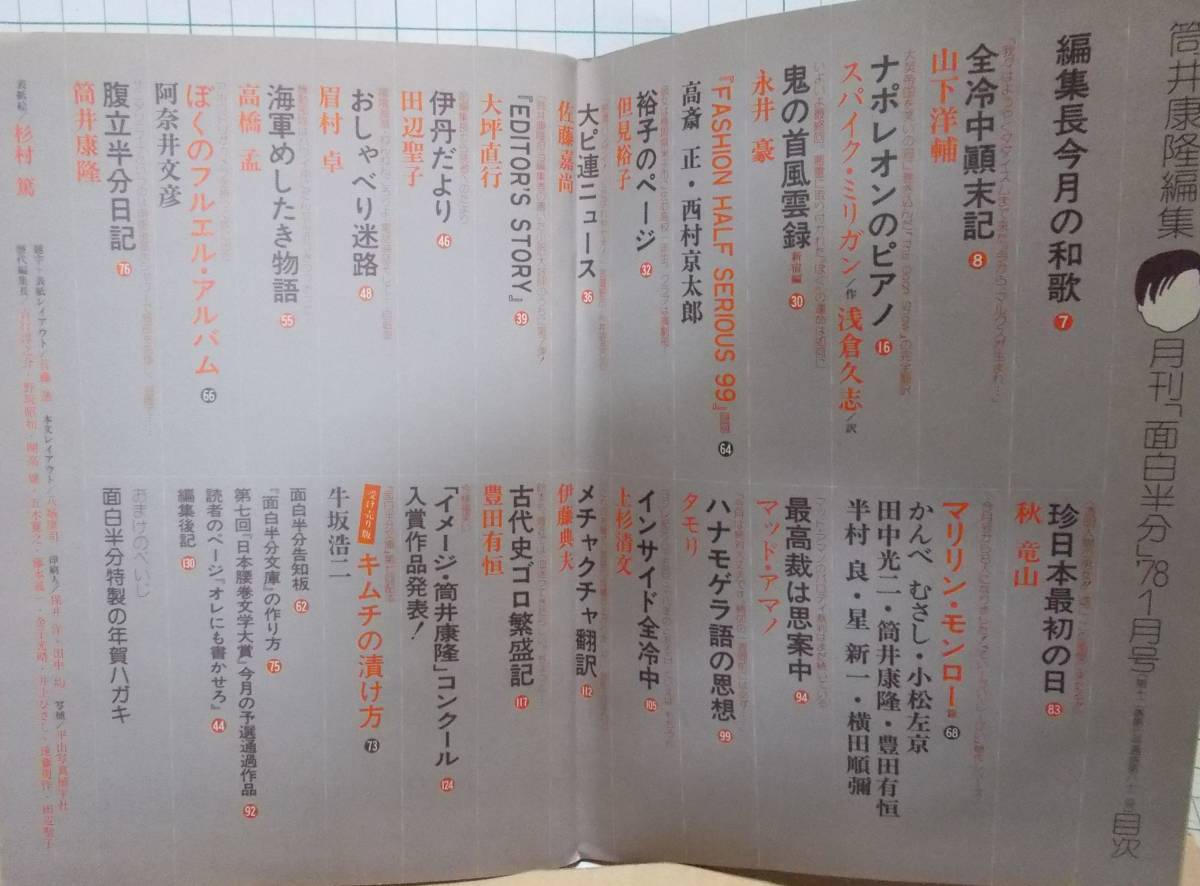 筒井康隆編集
月刊「面白半分」'78 1月号
目次
編集長今月の和歌 7
全冷中顚末記 8
山下洋輔
ナポレオンのピアノ 16
スパイク・ミリガン/作 浅倉久志/訳
鬼の首風雲録 新宿編 30
永井 豪
『FASHION HALF SERIOUS 99』 64
高斎 正・西村京太郎
裕子のページ 32
但見裕子
大ピ連ニュース 36
佐藤嘉尚
『EDITOR'S STORY』 39
大坪直行
伊丹だより 46
田辺聖子
おしゃべり迷路 48
眉村 卓
海軍めしたき物語 55
高橋 孟
ぼくのフルエル・アルバム 66
阿奈井文彦
腹立半分日記 76
筒井康隆
表紙絵/杉村 篤
珍日本最初の日 83
秋 竜山
マリリン・モンロー 68
かんべ むさし・小松左京
田中光二・筒井康隆・豊田有恒
半村 良・星 新一・横田順彌
最高裁は思案中 94
マッド・アマノ
ハナモゲラ語の思想 99
タモリ
インサイド全冷中 105
上杉清文
メチャクチャ翻訳 112
伊藤典夫
古代史ゴロ繁盛記 117
豊田有恒
「イメージ・筒井康隆」コンクール 124
入賞作品発表!
受け売り版 キムチの漬け方 73
牛坂浩二
面白半分告知板 62
『面白半分文庫』の作り方 75
第七回『日本腰巻文学大賞』今月の予選通過作品 92
読者のページ『オレにも書かせろ』 44
編集後記 130
おまけのぺいじ
面白半分特製の年賀ハガキ